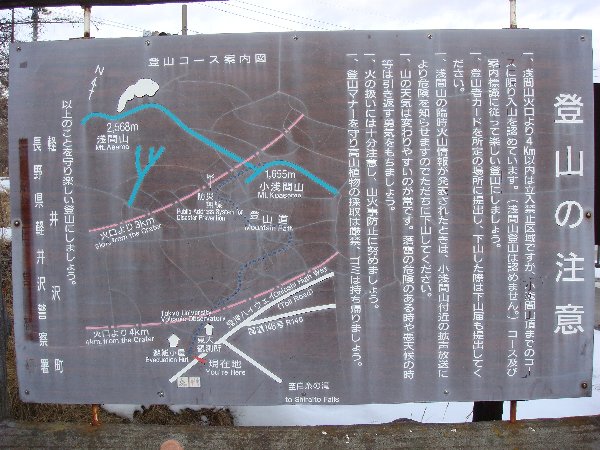 登山の注意
一、浅間山火口より4km以内は立入禁止区域ですが、小浅間山頂までのコー
スに限り入山を認めています。(浅間山登山は認めません。)コース及び
案内標識に従って楽しい登山にしましょう。
一、登山者カードを所定の場所に提出し、下山した際は下山届も提出してく
ださい。
一、浅間山の臨時火山情報が発表されたときは、小浅間山付近の拡声放送に
より危険を知らせますのでただちに下山してください。
一、山の天気は変わりやすいのが常です。落雷の危険のある時や悪天候の時
等は引き返す勇気をもちましょう。
一、火の扱いには十分注意し、山火事防止に努めましょう。
一、登山マナーを守り高山植物の採取は厳禁、ゴミは持ち帰りましょう。
以上のことを守り楽しい登山にしましょう。
軽井沢町
長野県軽井沢警察署
登山コース案内図
N
2,568m
浅間山
Mt. Asama
1,655m
小浅間山
Mt. Koasama
防災
Public Address System for
Disaster Prevention
登山道
Mountain Path
火口より3km
3km from the Crater
火口より4km
4km from the Crater
Tokyo University
Volcano Observatory
東大
観測所
避難小屋
Evacuation Hut
現在地
You're Here
(Toll Road)
国道146号 R146
至白糸の滝
to Shiraito Falls